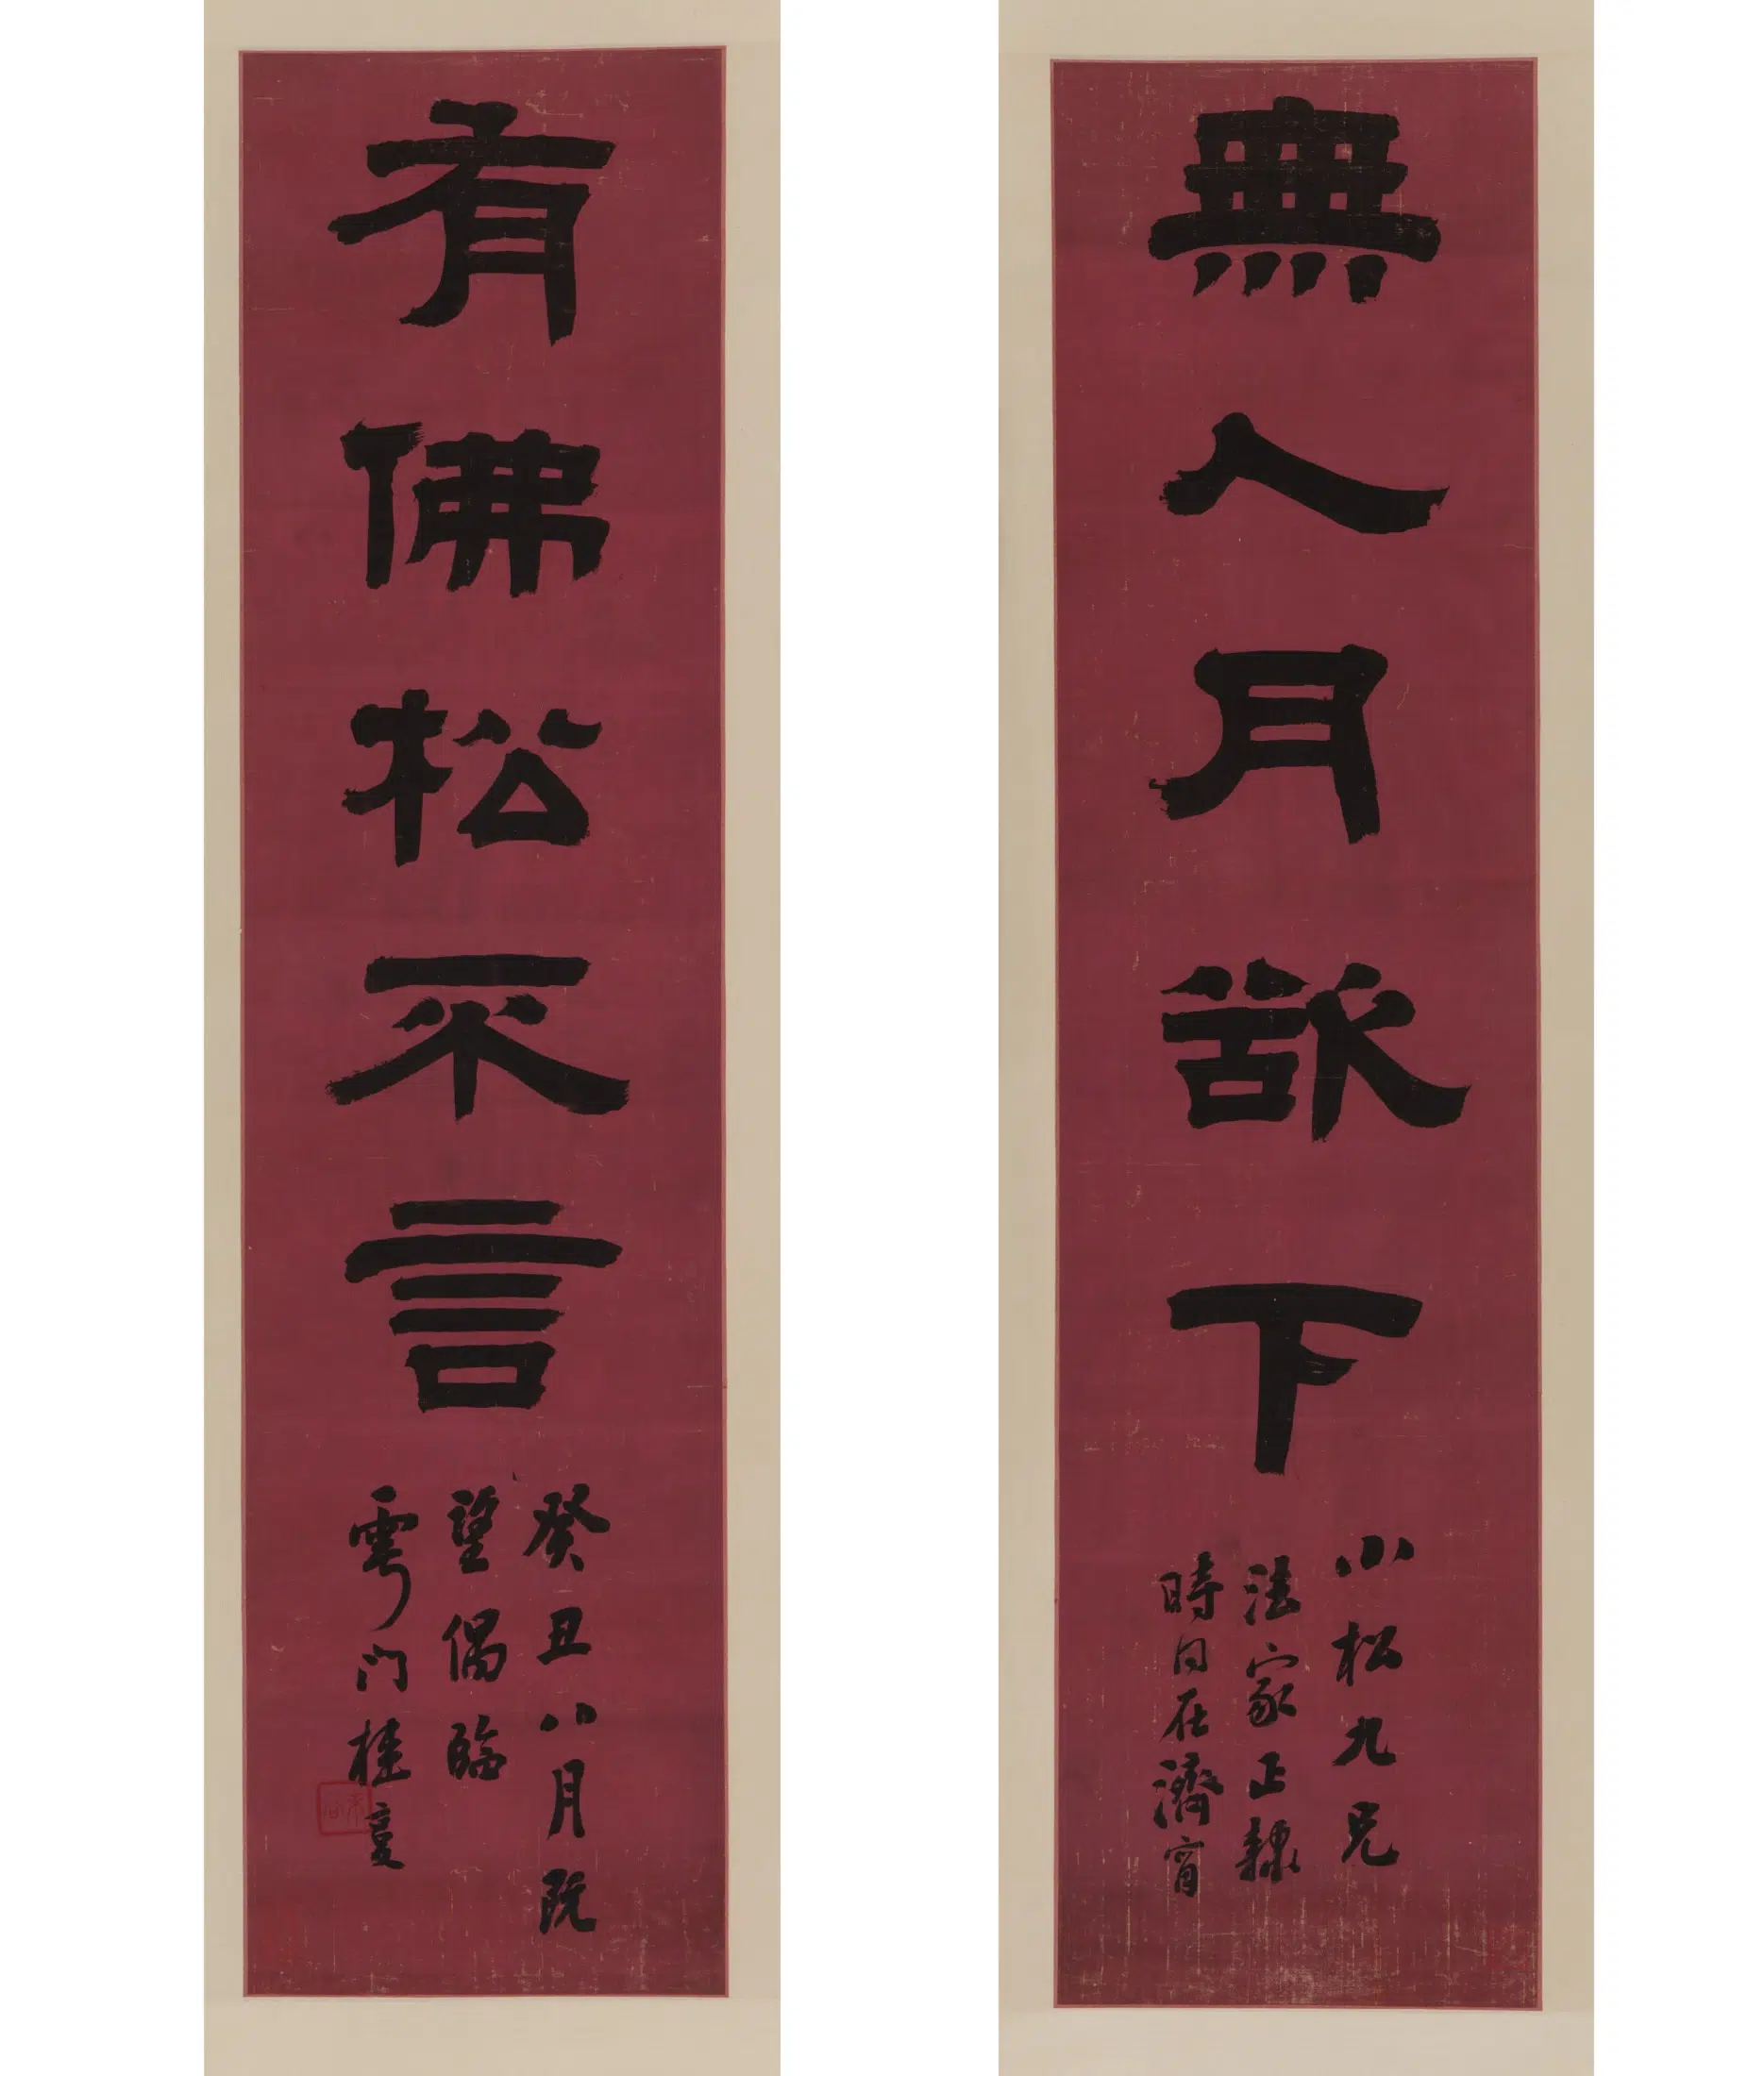 無人月欲下
小松九兄
法家正隸
時同在濟甯
有佛松不言
癸丑八月既
望偶臨
雩門桂馥
未谷